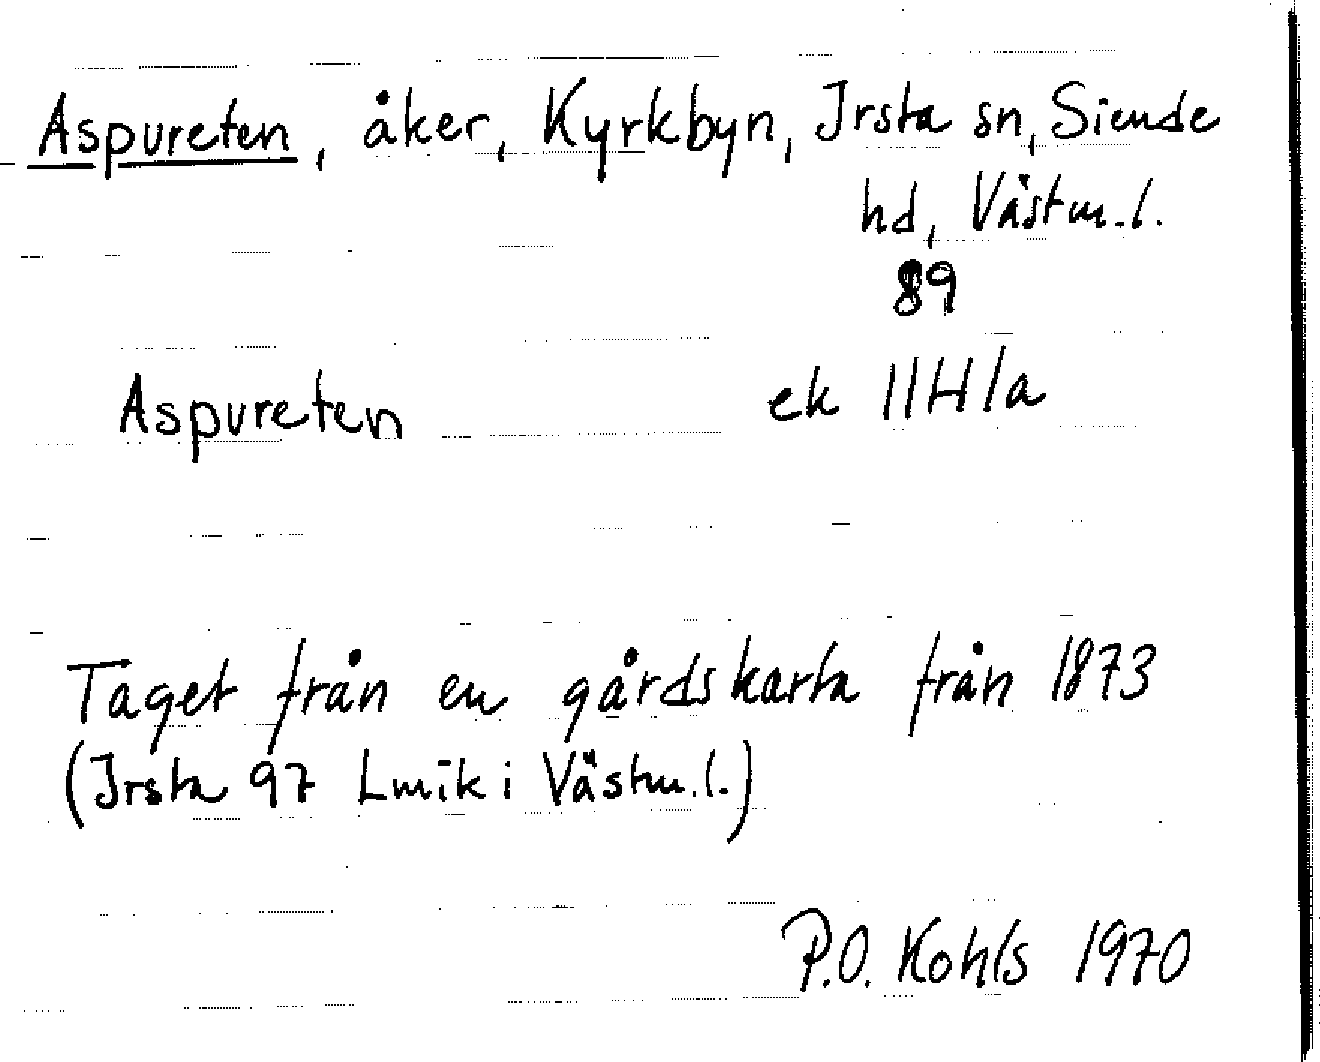 Aspureten, åker, Kyrkbyn, Irsta sn, Siende
hd, Västm. l.
89
Aspureten ek 11H/a
Taget från en gårdskarta från 1873
(Irsta 97 Lmk i Västm. l.)
P.O. Kohls 1970